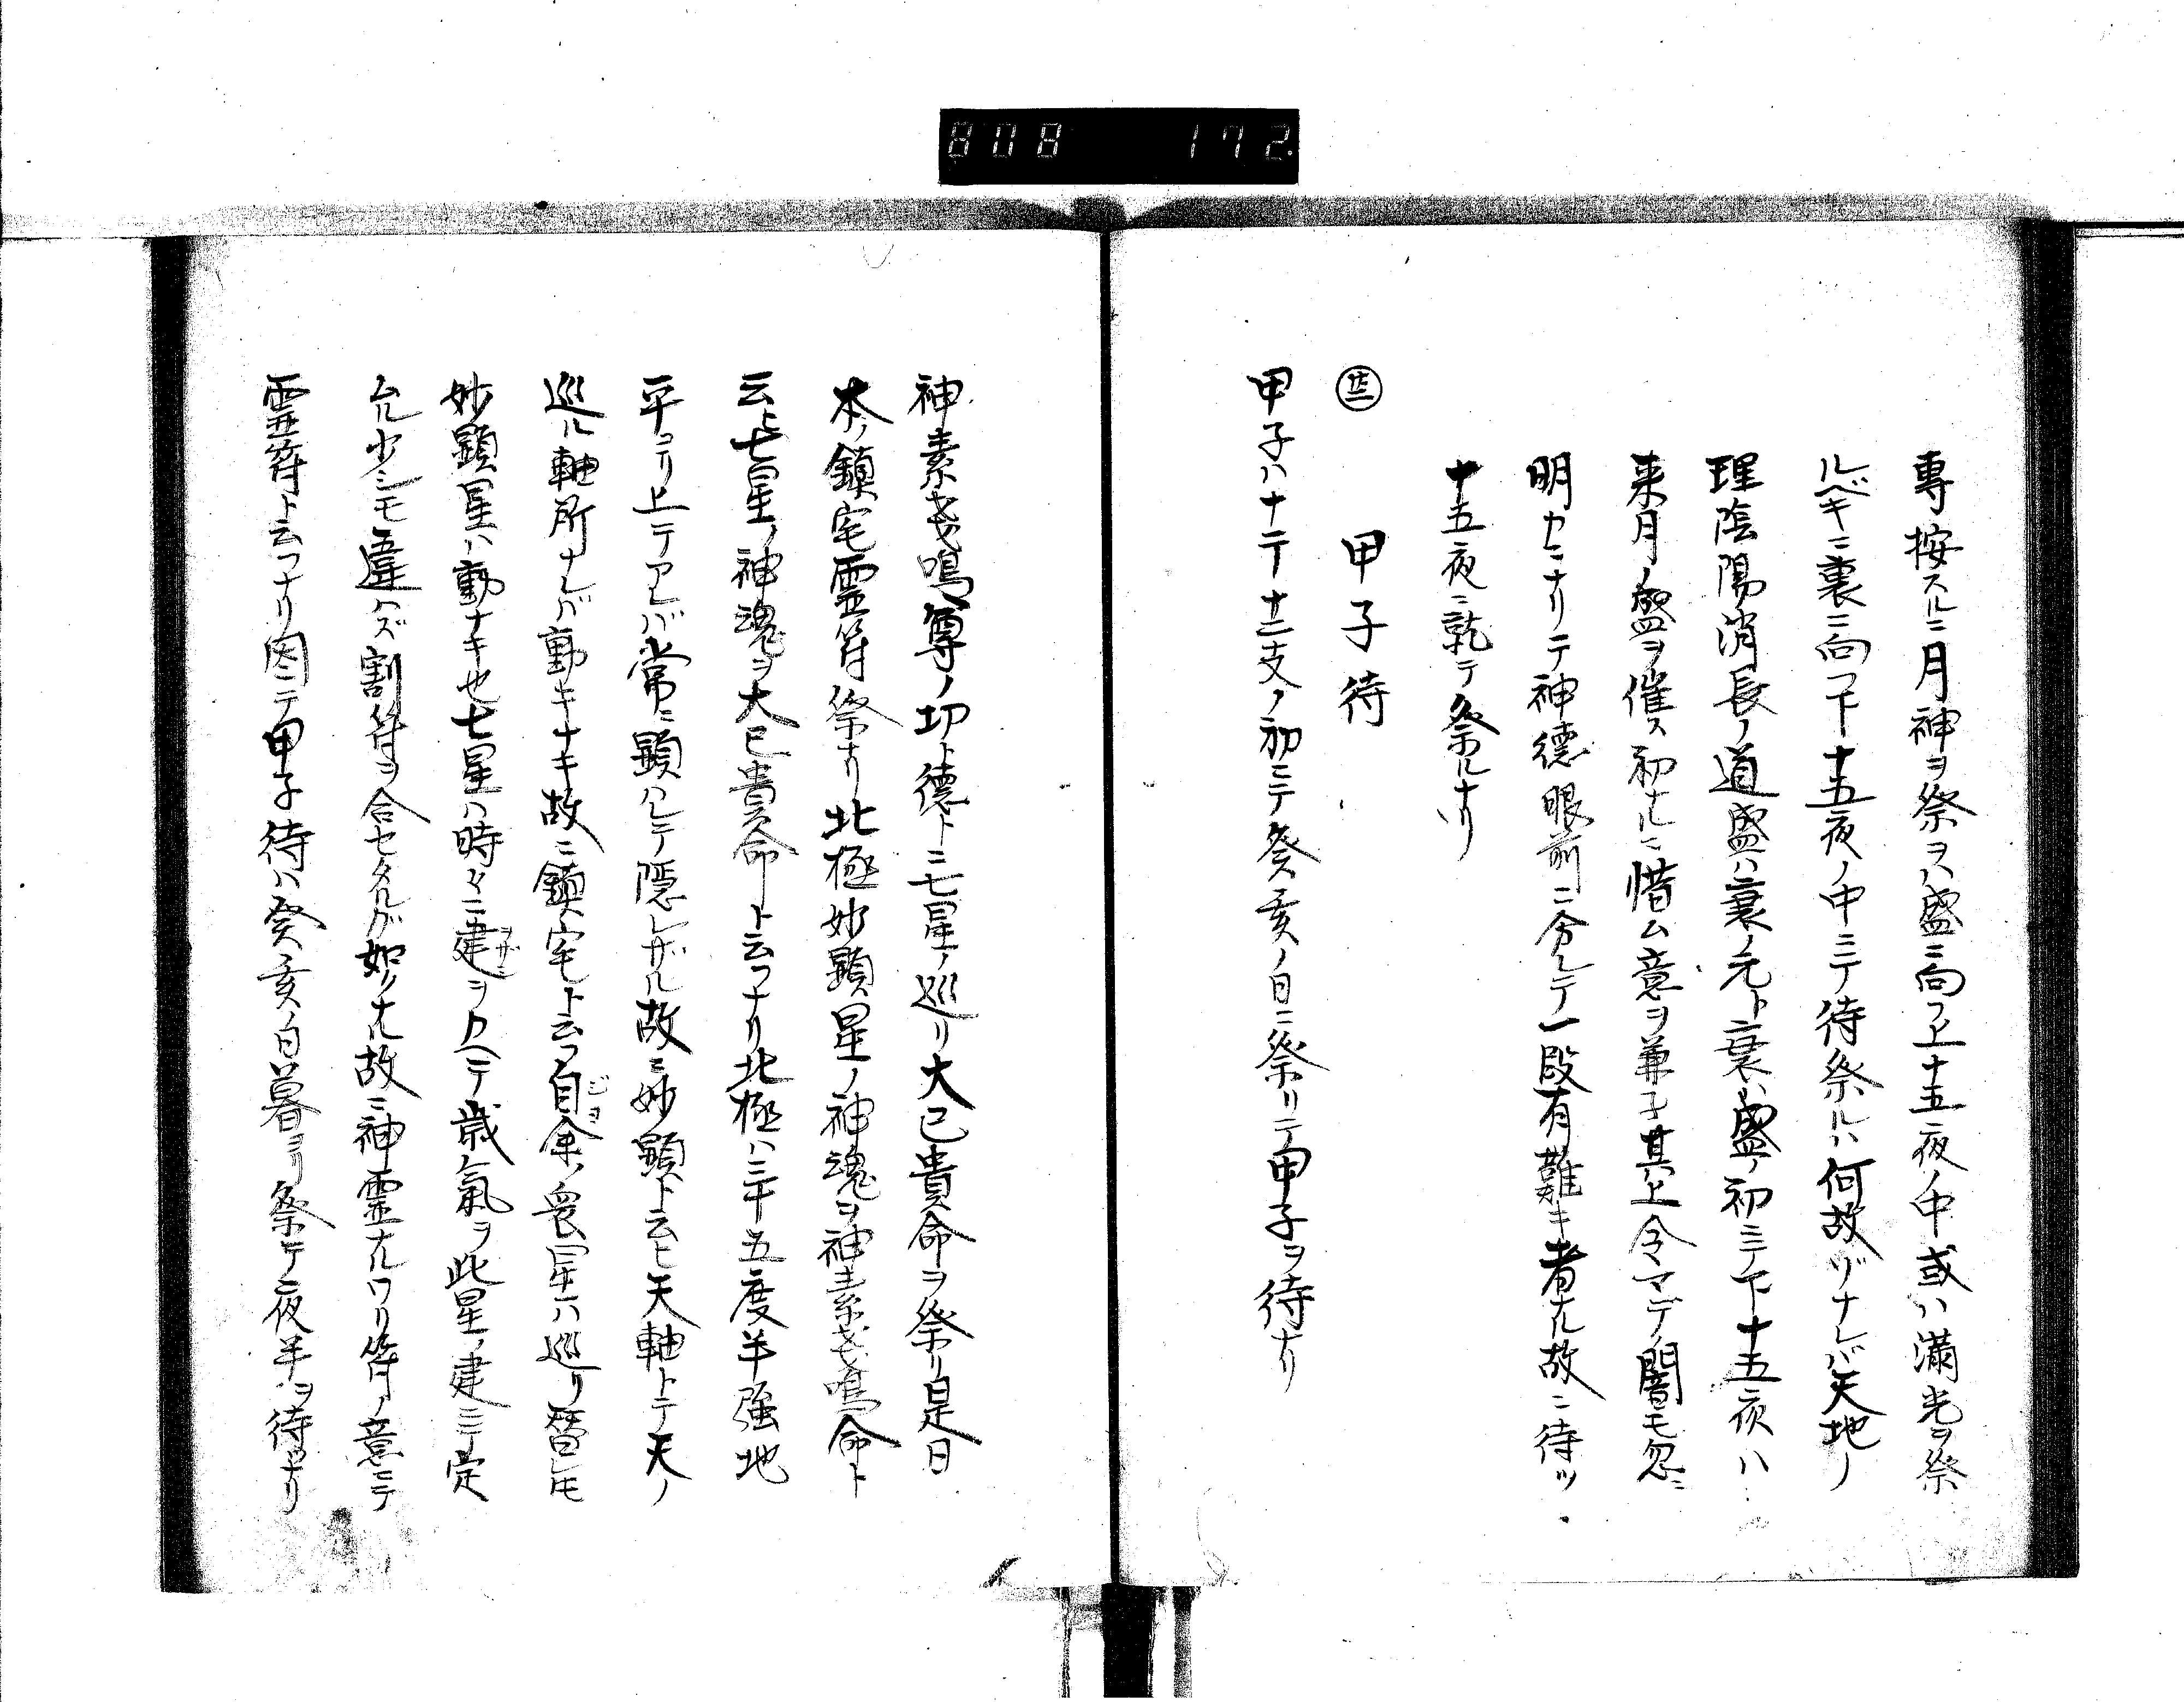 808 172
專按スルニ月神ヲ祭ラハ盛ニ向フ上十五夜ノ中或ハ満光ヲ祭
ルベキニ裏ニ向フ下十五夜ノ中ニテ待祭ルハ何故ゾナレバ天地ノ
理陰陽消長ノ道盛ハ衰ノ元ト衰ハ盛ノ初ニテ下十五夜ハ
来月ノ盤ヲ催ス初ナルニ惜ム意ヲ兼子其上今マデノ闇モ忽ニ
明カニナリテ神德眼前ニ分レテ一段有難キ者ナル故ニ待ツ
十五夜ニ就テ祭ルナリ
甲子待
甲子ハナテ十二支ノ初ニテ癸亥ノ日ニ祭リテ甲子ヲ待ナリ
神素戔嗚尊ノ功ト德トニ七星ノ巡リ大己貴命ヲ祭リ是日
本ノ鎮宅霊符祭ナリ北極妙顕星ノ神魂ヲ神素戔嗚命ト
云ヒ七星ノ神魂ヲ大己貴命ト云フナリ北極ハ三十五度半強地
平ヨリ上テアレバ常ニ顕ハレテ隠レザル故ニ妙顕ト云ヒ天軸トテ天ノ
巡ル軸所ナレバ動キナキ故ニ鎮宅ト云フ自余ノ衆星ハ巡リ替レモ
ジヨ
妙顕星ハ動ナキ也七星ハ時々ニ建ヲカヘテ歳氣ヲ此星ノ建ニテ定
ヲザシ
ムル少シモ違ハズ割符ヲ合セタルガ如クナル故ニ神霊ナルワリ符ノ意ニテ
霊符ト云フナリ因ニテ甲子待ハ癸亥ノ日暮ヨリ祭テ夜半ヲ待ツナリ